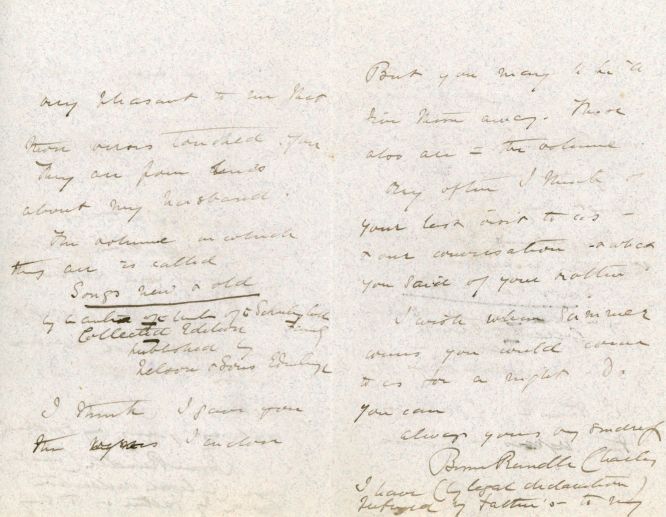 very pleasant to me that
those verses touched you
They are from lends
about my husband.
The volume in which
they are is called
Songs new & old
by author of
Collected Edition
published by
Nelson & Sons
I think I gave you
the I enclose
But you may like to
give them away. These
also are in the volume
Very often I think of
your last visit to us -
& our conversation & what
you said of your mother
I wish when Summer
comes you would come
to us for a night. Do
you can
always yours very
Rundle Charles
I have (by legal declaration)
my father's to my